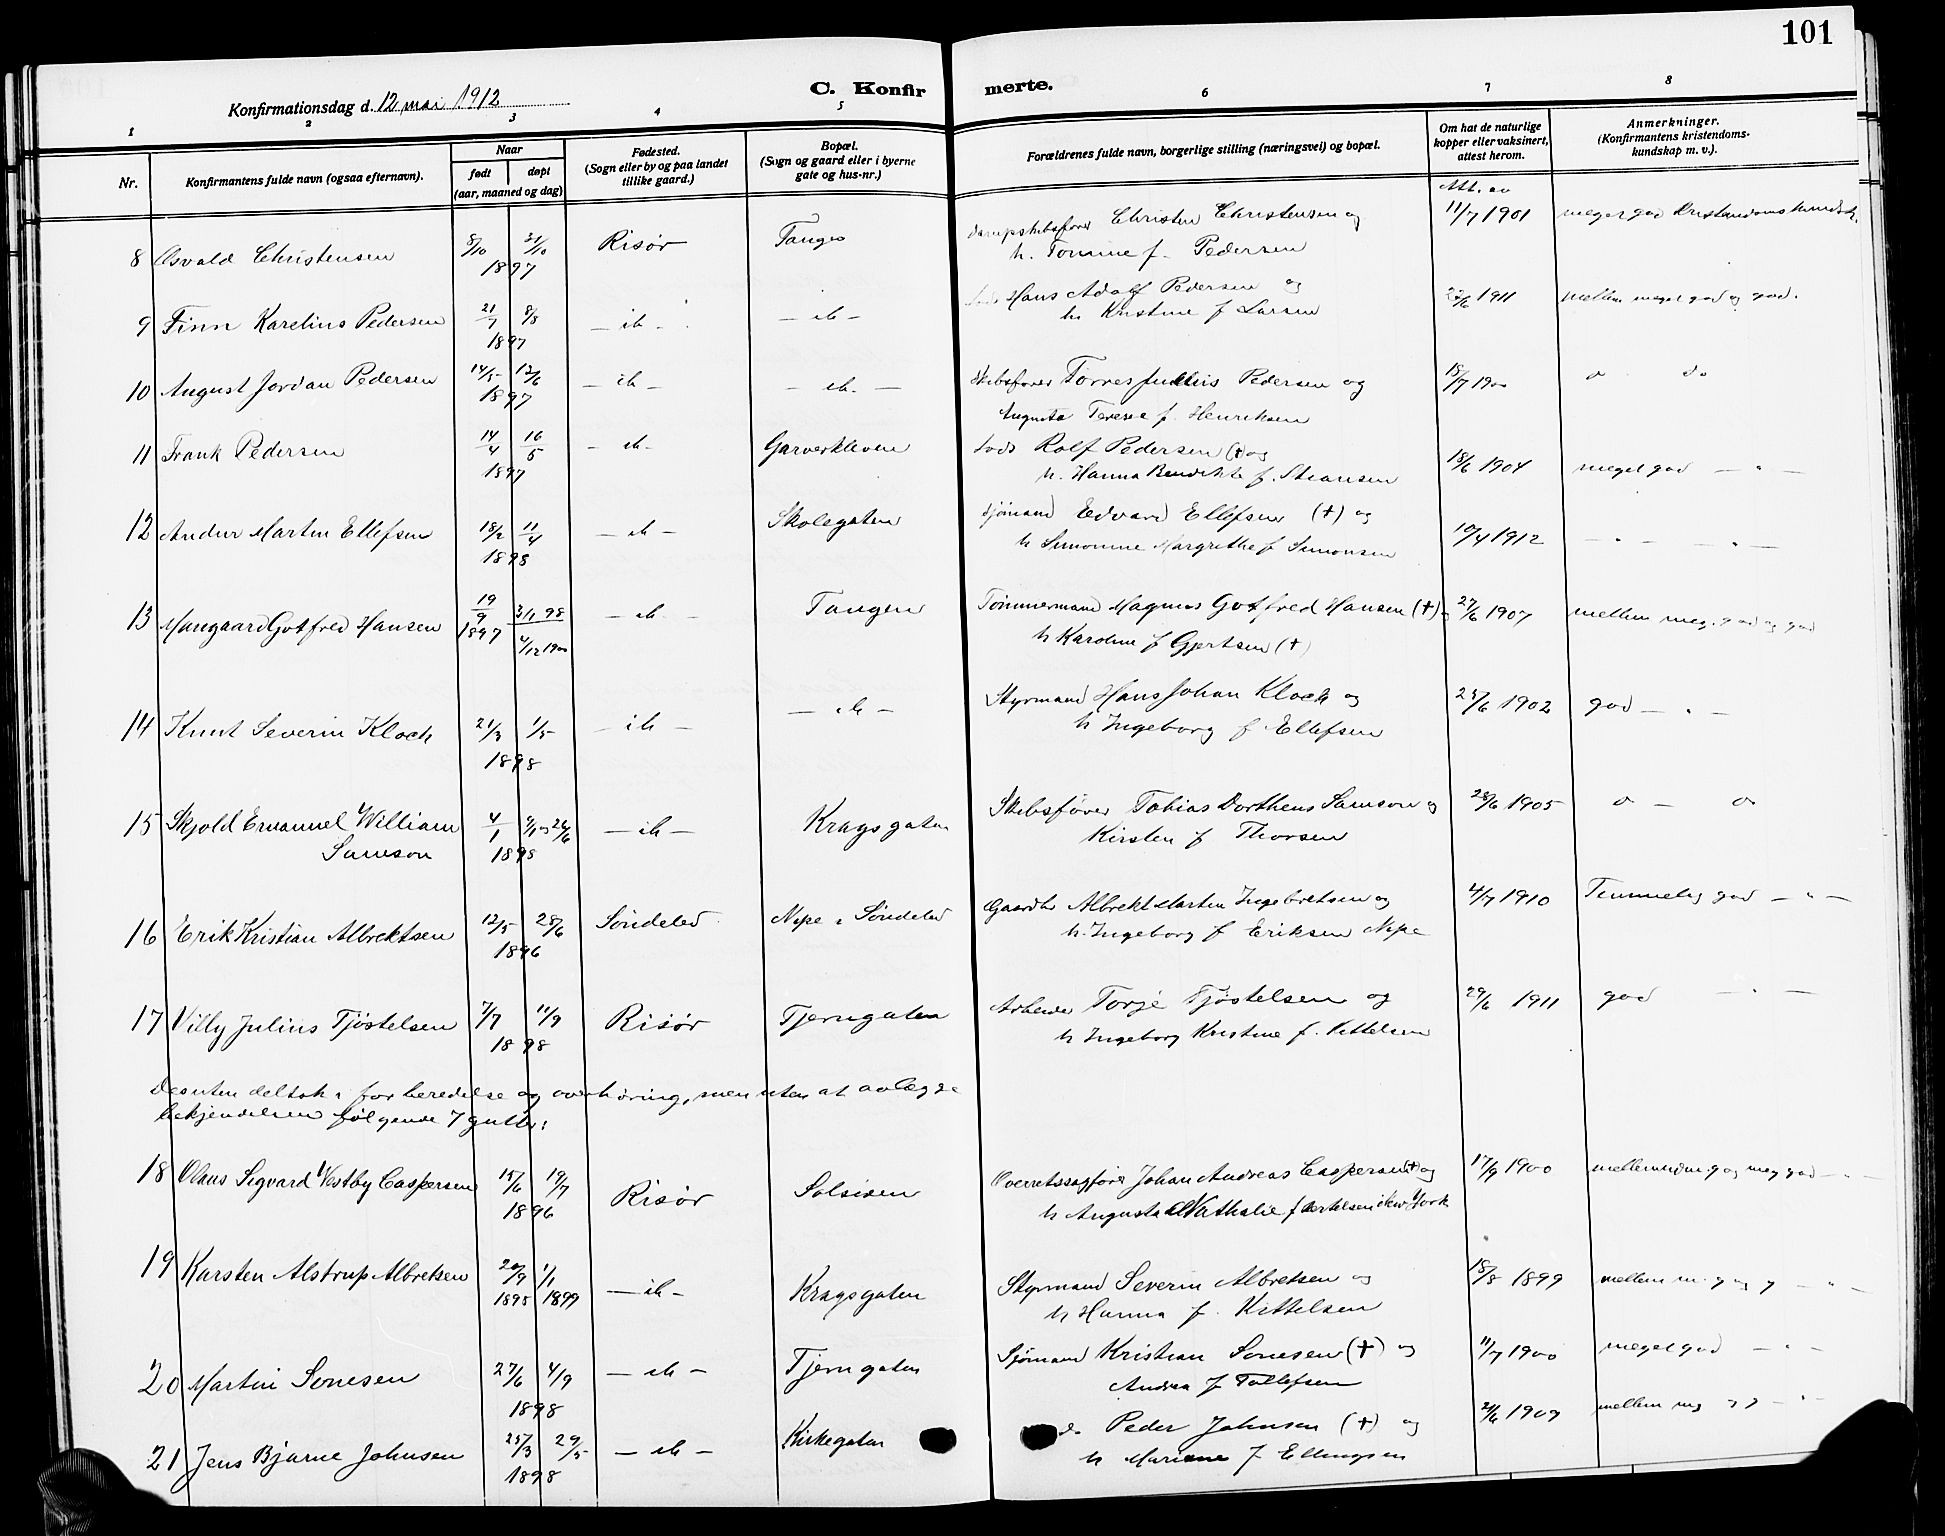 101
Konfirmationsdag d. 12 mai 1912
C. Konfirmerte.
1 2 3 4 5 6 7 8
Nr. Konfirmantens fulde navn (ogsaa efternavn). Naar født døpt (aar, maaned og dag) Fødested. (Sogn eller by og paa landet tillike gaard.) Bopæl. (Sogn og gaard eller i byerne gate og hus-nr.) Forældrenes fulde navn, borgerlige stilling (næringsvei) og bopæl. Om hat de naturlige kopper eller vaksinert, attest herom. Anmerkninger. (Konfirmantens kristendoms-kundskap m. v.).
Att. av
8 Osvald Christensen 8/10 31/10 1897 Risør Tangen Christen Christensen og 11/7 1901 meget god Kristendomskundsk.
h. Tomine f. Pedersen
9 Finn Karelius Pedersen 21/7 8/8 1897 — do — — do — Hans Adolf Pedersen og 22/6 1911 mellem meget god og god.
h. Kristine f Larsen
10 August Jordan Pedersen 14/5 12/6 1897 — do — — do — Skibsfører Torres Julius Pedersen og 18/7 1900 do do
Augusta Terese f. Henriksen
11 Frank Pedersen 14/4 16/5 1897 — do — Garverkleven Lods Rolf Pedersen (†) og 18/6 1904 meget god — " —
h. Hanna Bendikte f.
12 Martin Ellefsen 18/2 11/4 1898 — do — Skolegaten Sjømand Edvard Ellefsen (†) og 10/4 1912 — " — — " —
h Simonine Margrethe f Simonsen
13 Mangaard Gotfred Hansen 19/9 1897 3/1 98 4/12 1900 — do — Tangen Tømmermand Magnus Gotfred Hansen (†) og 27/6 1907 mellem meg. god og god
h Karoline f Gjertsen (†)
14 Knut Severin Kloch 21/3 1/5 1898 — do — — do — Styrmand Hans Johan Kloch og 25/6 1902 god — " —
h Ingeborg f Ellefsen
15 Skjold Emanuel William Samson 4/1 9/1 og 26/6 1898 — do — Kragsgaten Skibsfører Tobias Dorthens Samson og 28/6 1905 do — do
Kirsten f Thorsen
16 Erik Kristian Albrektsen 12/5 28/6 1896 Søndeled Nipe i Søndeled Gaardbr Albrekt Martin Ingebretsen og 4/7 1910 Temmelig god — " —
h. Ingeborg f Eriksen Nipe
17 Villy Julius Tjøstelsen 7/7 11/9 1898 Risør Tjerngaten Arbeider Torje Tjøstelsen og 29/6 1911 god — " —
h Ingeborg Kristine f. Kittelsen
Desuten deltok i forberedelse og overhøring, men uten at avlægge
bekjendelsen følgende 7 gutter:
18 Olaus Sigvard Vestby Caspersen 15/6 19/7 1896 Risør Solsisen Overretssagfører Johan Andreas Caspersen (†) og 17/9 1900 mellem udm. g og meg god — " —
h Augusta Nathalie f Bertelsen i New York
19 Karsten Alstrup Albretsen 20/9 1898 1/1 1899 — do — Kragsgaten Styrmand Severin Albretsen og 18/8 1899 mellem m. g og g — " —
h Hanna f. Kittelsen
20 Martin Sonesen 27/6 4/9 1898 — do — Tjerngaten Sjømand Kristian Sonesen (†) og 11/7 1900 meget god — " —
Andrea f Tollefsen
21 Jens Bjarne Johnsen 25/3 29/5 1898 — do — Kirkegaten do Peder Johnsen (†) og 24/6 1909 mellem mg og g — " —
h Mariane f Ellingsen